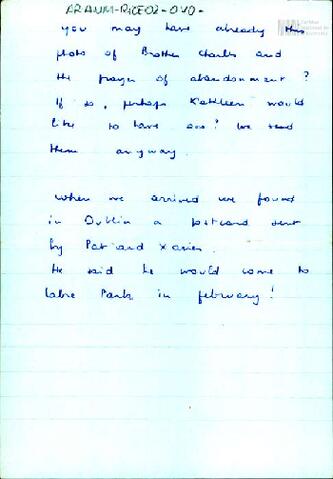 ARANM-RICE02-040-
you may have already this
photo of Brother Charles and
the prayer of abandonment?
If so, perhaps Kathleen would
like to have one? We send
them anyway.
When we arrived we found
in Dublin a postcard sent
by Pat and Xavier.
He said he would come to
Labre Park in february!